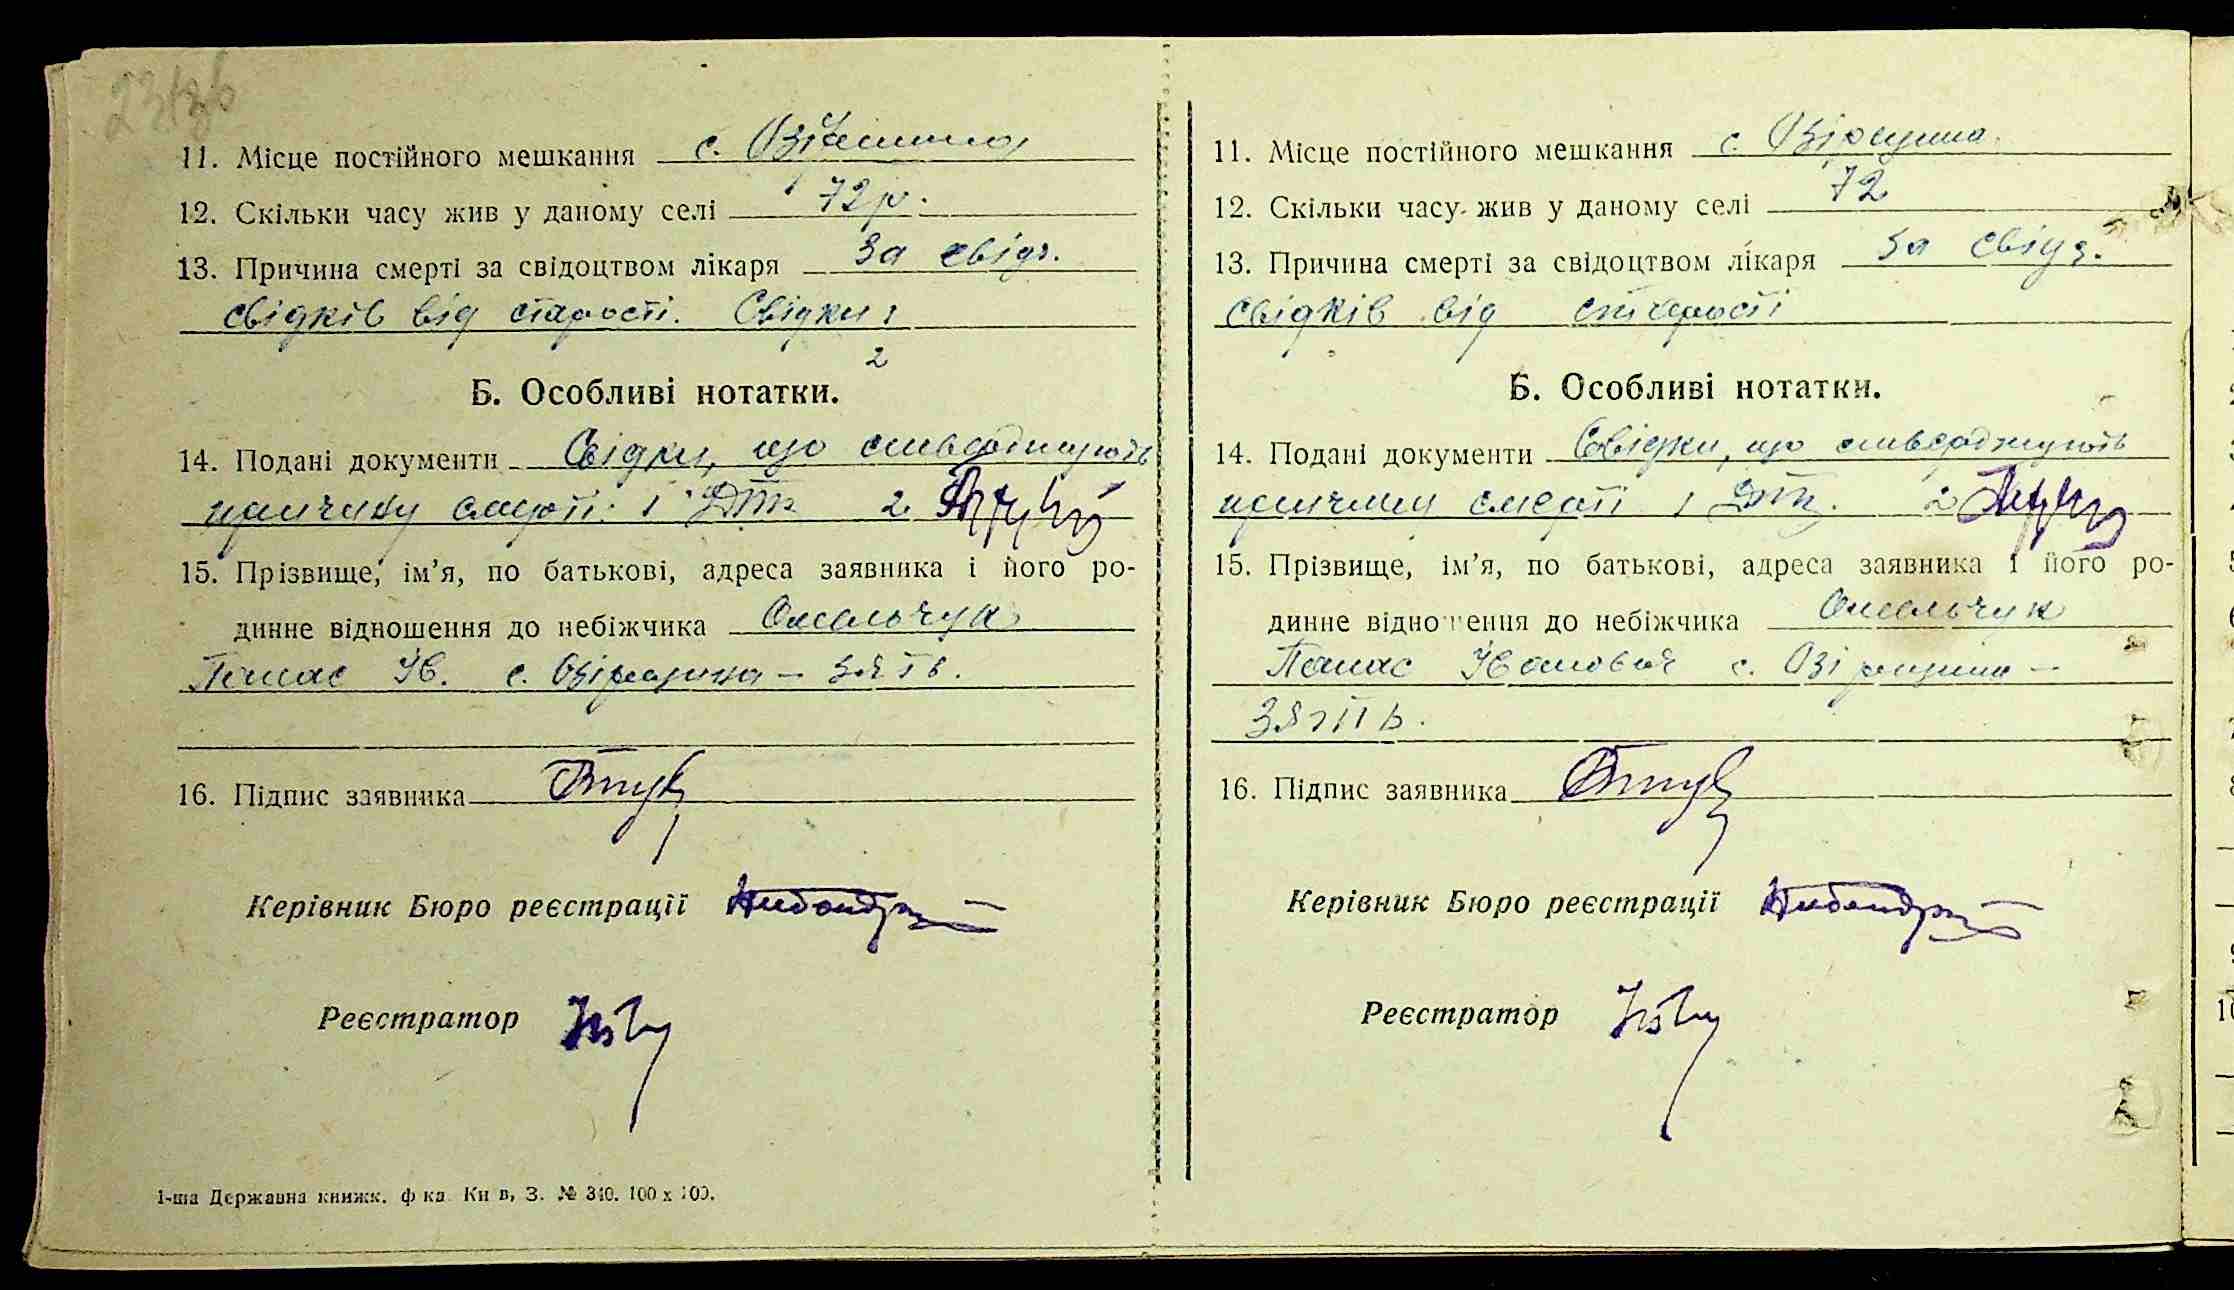 11. Місце постійного мешкання с. Озірщина
12. Скільки часу жив у даному селі 72 р.
13. Причина смерті за свідоцтвом лікаря за свідч.
свідків від старості. Свідки:
2
Б. Особливі нотатки.
14. Подані документи Свідки, що стверджують
причину смерті: 1 2.
15. Прізвище, ім’я, по батькові, адреса заявника і його ро-
динне відношення до небіжчика Омельчук
Панас Ів. с. Озірщина – зять.
16. Підпис заявника
Керівник Бюро реєстрації
Реєстратор
1-ша Державна книжк. ф ка. Киів, З. № 340. 100 х 100.
11. Місце постійного мешкання с. Озірщина.
12. Скільки часу жив у даному селі 72
13. Причина смерті за свідоцтвом лікаря за свідч.
свідків від старості
Б. Особливі нотатки.
14. Подані документи Свідки, що стверджують
причину смерті 1 2
15. Прізвище, ім’я, по батькові, адреса заявника і його ро-
динне відношення до небіжчика Омельчук
Панас Іванович с. Озірщина –
зять.
16. Підпис заявника
Керівник Бюро реєстрації
Реєстратор